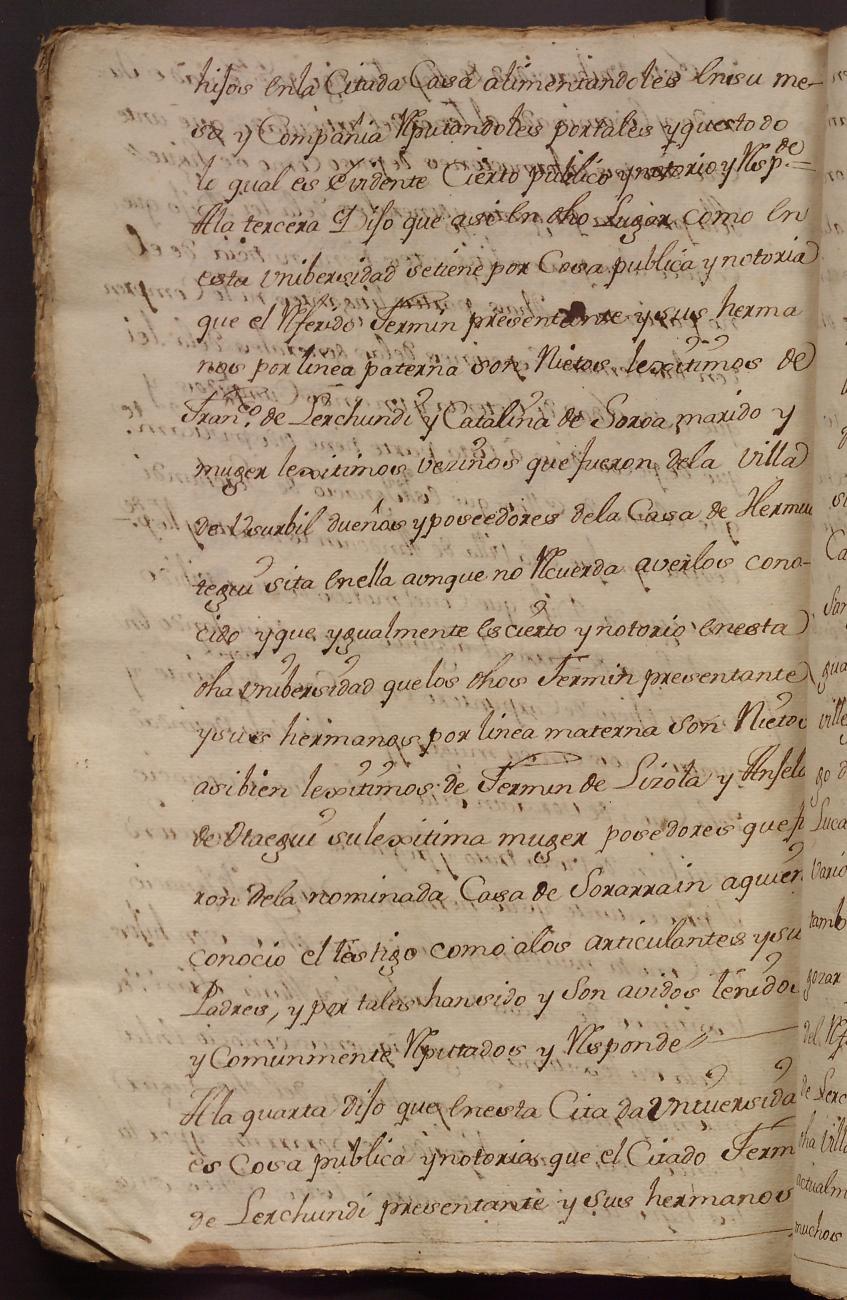 hijos enla Citada Casa alimentandoles ensu me-
sa y Compañia Rputandoles portales yquetodo
lo qual es evidente Cierto publico ynotorio y Rsp.de =
Ala tercera Dijo que asi en dho Lugar como en
esta Vnibersidad setiene por Cosa publica y notoria
que el Rferido Fermin presentante y sus herma
nos por linea paterna son Nietos lexitimos de
Fran.co de Lerchundi y Catalina de Soroa marido y
muger lexitimos vezinos que fueron dela villa
de Vsurbil dueños y poseedores dela Casa de Hermu
tegui sita enella aunque no Rcuerda averlos cono-
cido y que ygualmente es cierto y notorio enesta
dha Vnibersidad quelos dhos Fermin presentante
ysus hermanos por linea materna son Nietos
asibien lexitimos de Fermin de Lizola y Ansela
de Otaegui sulexitima muger posedores que f
ron dela nominada Casa de Sorarrain aquien
conocio el testigo como alos articulantes y su
Padres, y por tales han sido y son avidos tenidos
y Comunmente Rputados y Rsponde
Ala quarta dijo que enesta Citada Vniversida
es Cosa publica ynotoria que el Citado Ferm
de Lerchundi presentante y sus hermanos